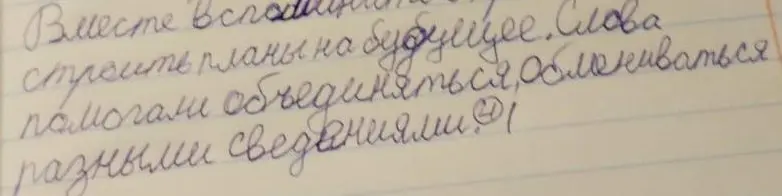 Вместе вспоминать
строить планы на будующее. Слова
помогали объединяться, обмениваться
разными сведаниями. ④